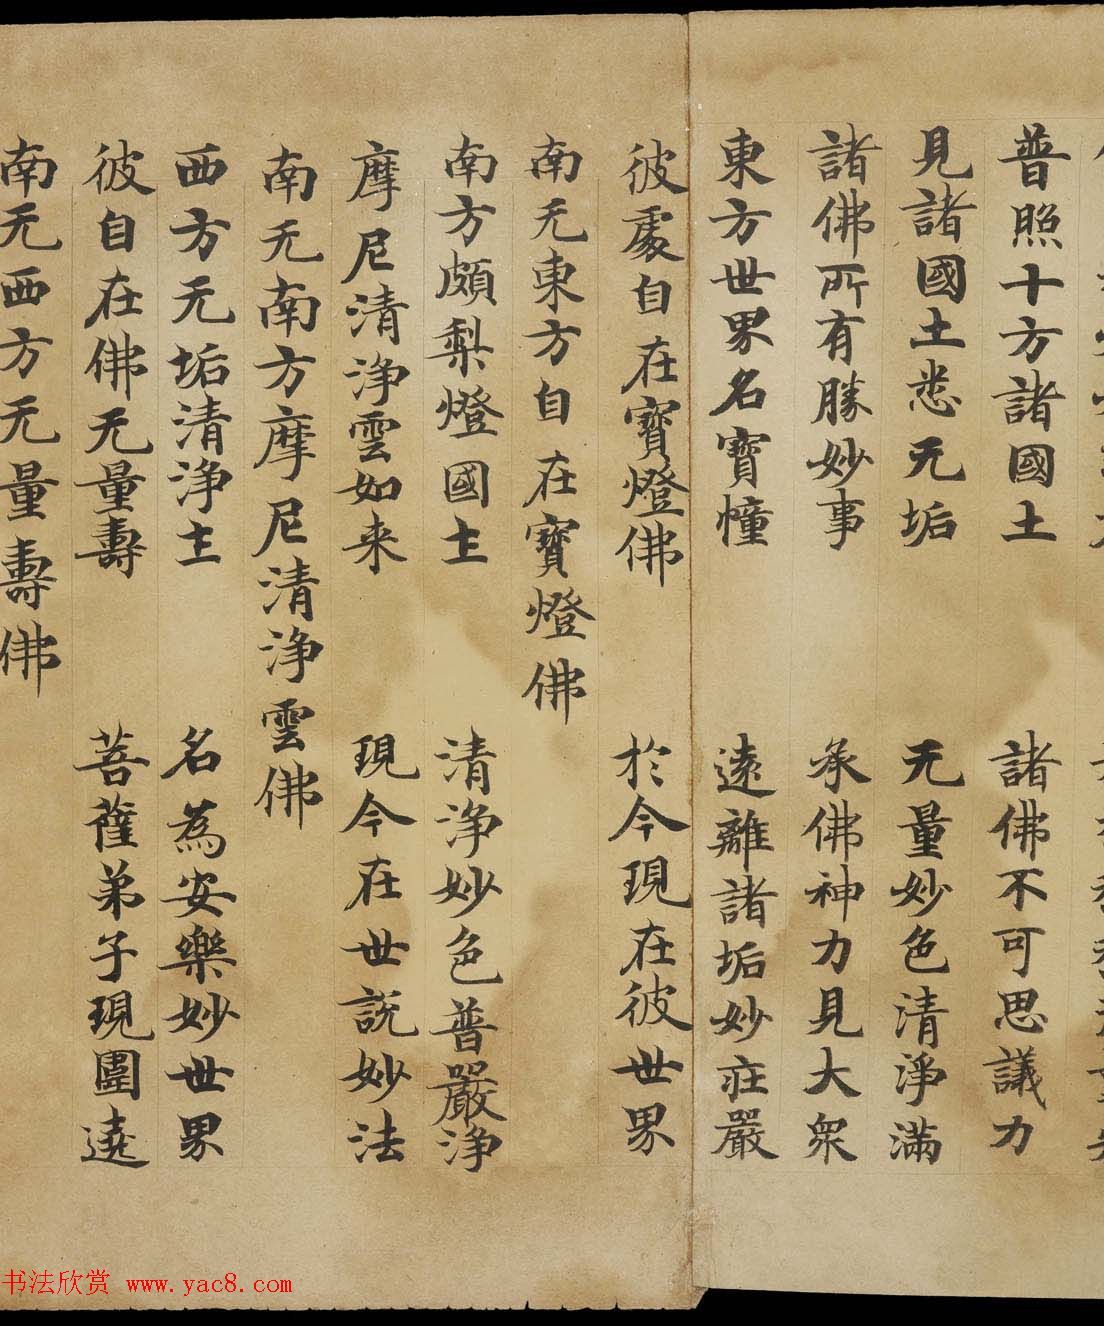 普照十方諸國土 諸佛不可思議力
見諸國土悉无垢 无量妙色清淨滿
諸佛所有勝妙事 承佛神力見大眾
東方世界名寶幢 遠離諸垢妙莊嚴
彼處自在寶燈佛 於今現在彼世界
南无東方自在寶燈佛
南方頗梨燈國土 清淨妙色普嚴淨
摩尼清淨雲如来 現今在世說妙法
南无南方摩尼清淨雲佛
西方无垢清淨土 名為安樂妙世界
彼自在佛无量壽 菩薩弟子現圍遶
南无西方无量壽佛
书法欣赏 www.yac8.com